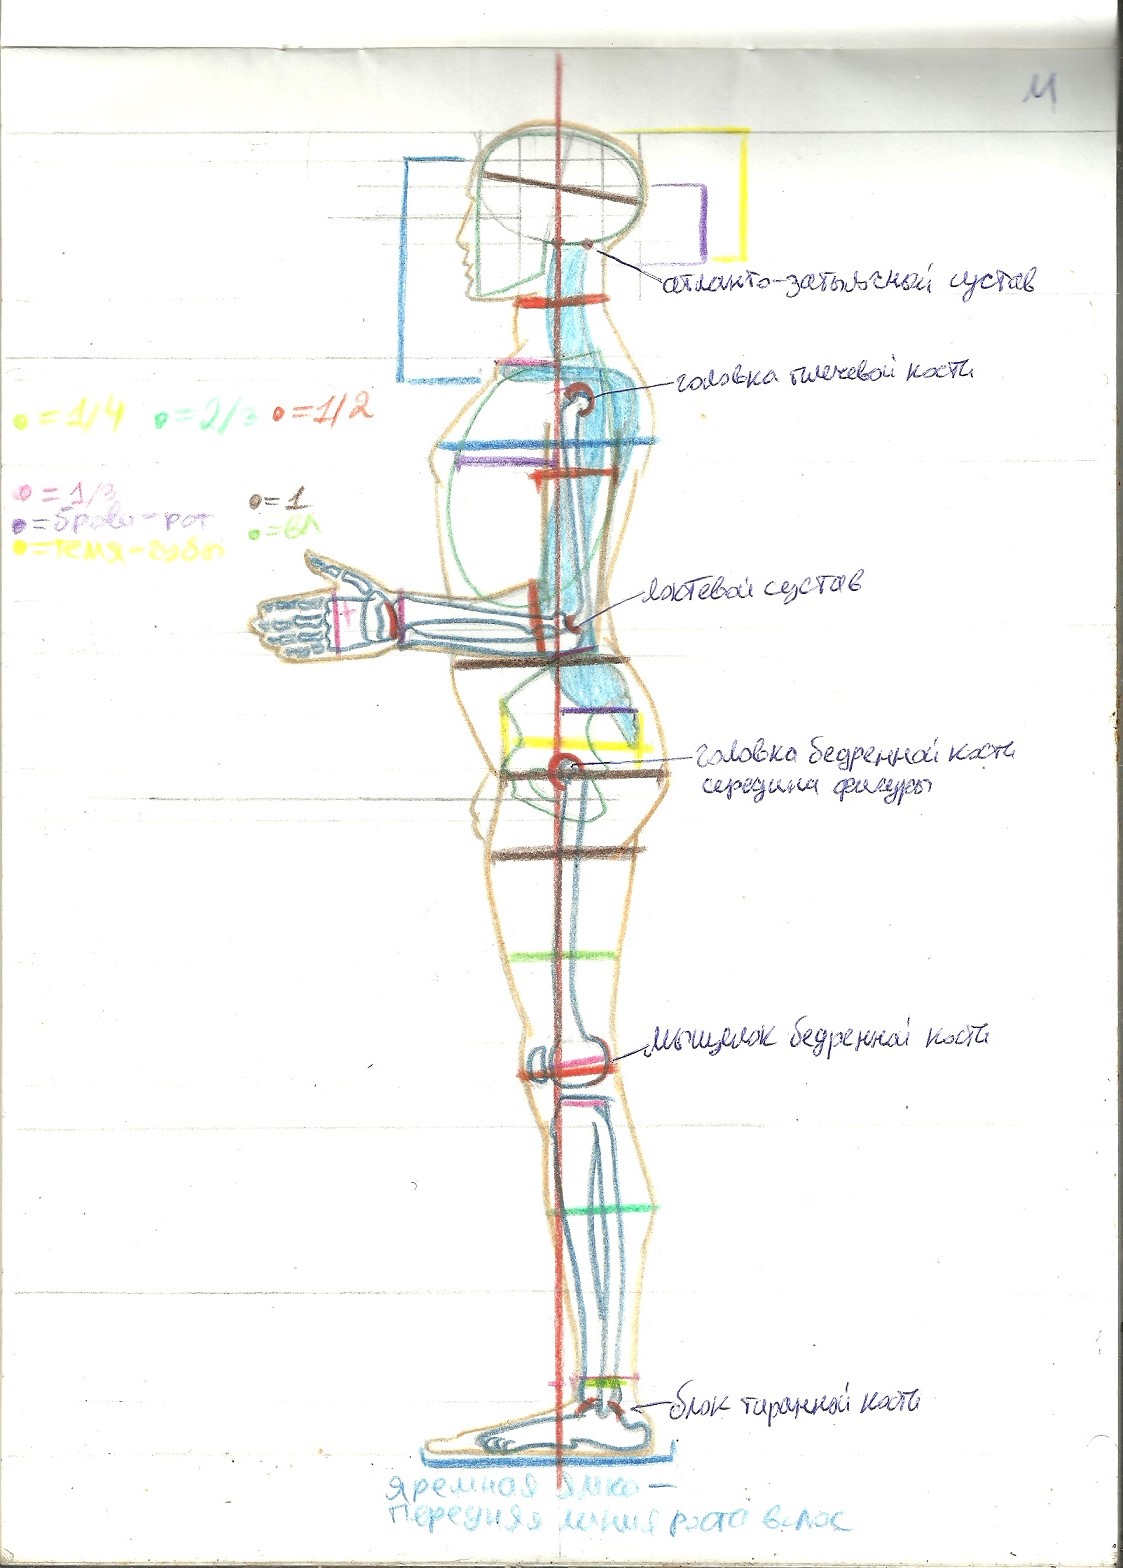 М
атланто-затылочный сустав
головка плечевой кости
=1/4 =2/3 =1/2
=1/3 =1
=брови-рот =вл
=темя-губы
локтевой сустав
головка бедренной кости
середина фигуры
мыщелок бедренной кости
блок таранной кости
яремная ямка —
передняя линия роста волос